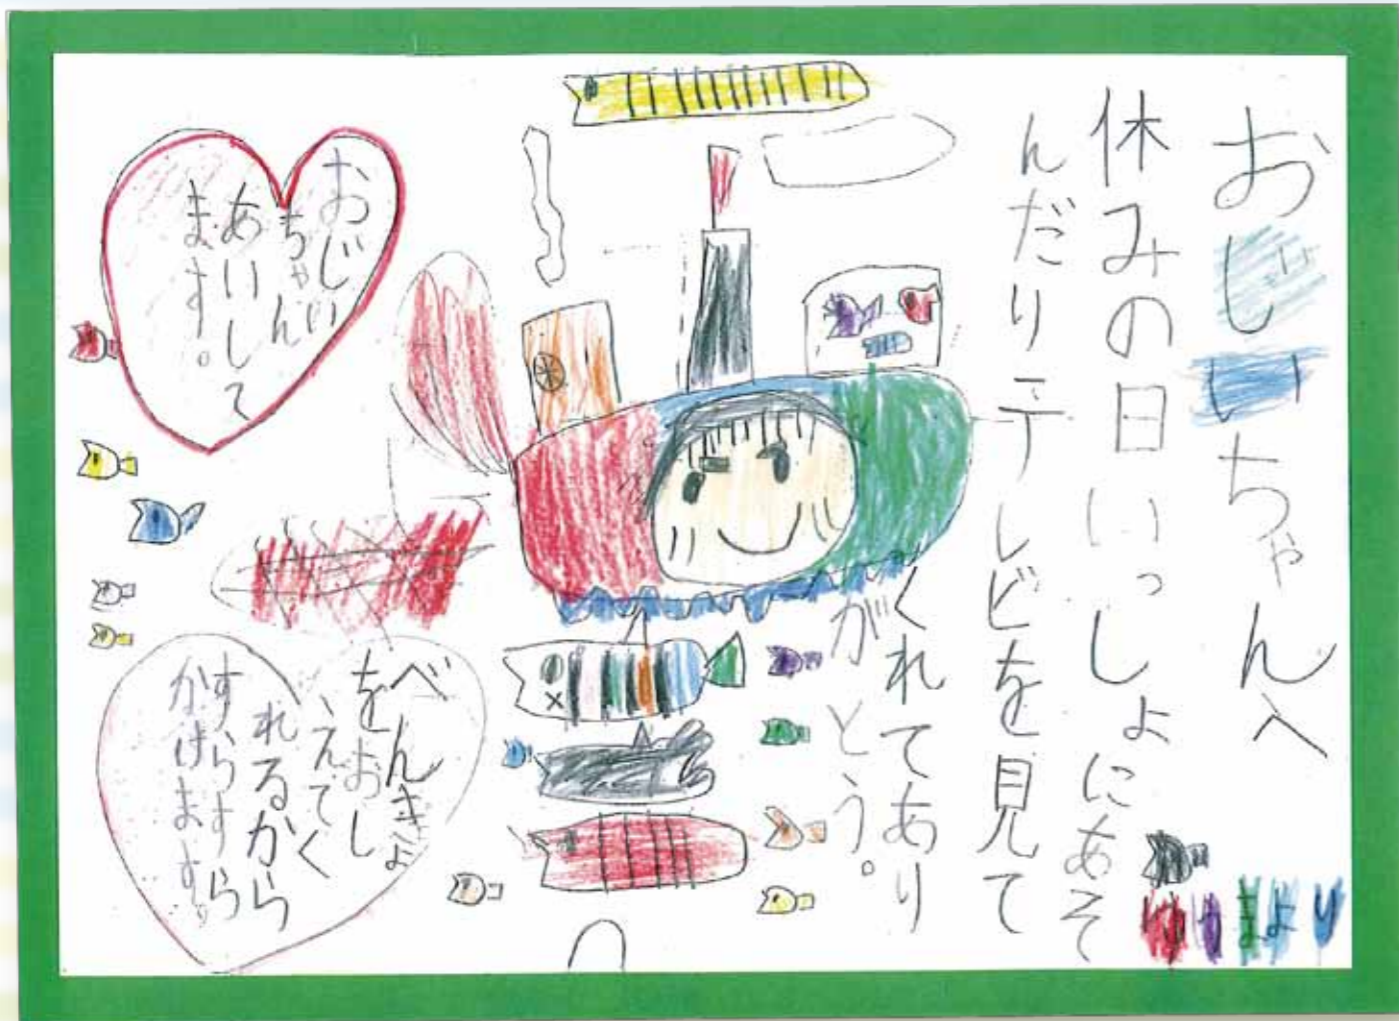 おじいちゃんへ
休みの日いっしょにあそ
んだりテレビを見て
くれてあり
がとう。
ゆうまより
おじい
ちゃん
あいして
ます。
べんきょ
をおし
えてく
れるから
すらすら
かけます。